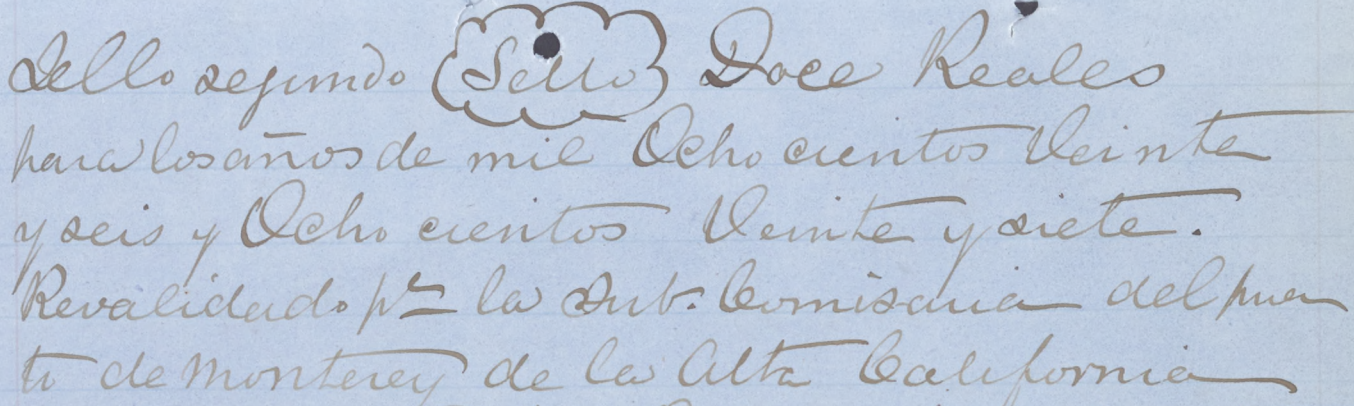 Sello segundo Sello Doce Reales
para los años de mil Ocho cientos Veinte
y seis y Ocho cientos Veinte y siete.
Revalidado pr la Sub. Comisaria del puer
to de Monterey de la Alta California